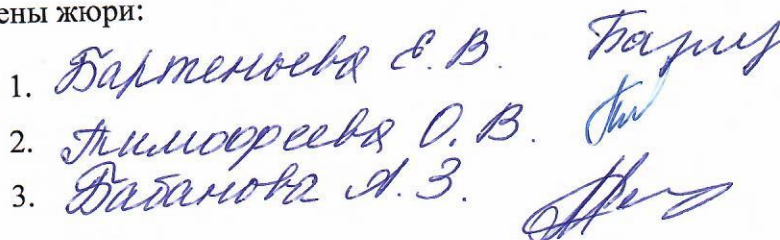 ены жюри:
1. Бартеньева Е. В.
2. Тимофеева О. В.
3. Бабанова А. З.